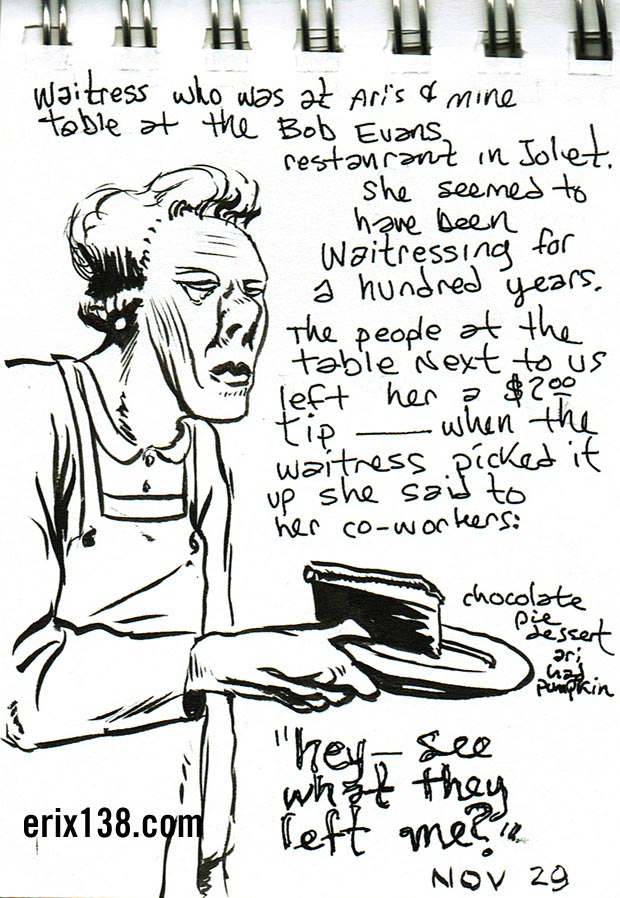 waitress who was at Ari's & mine
table at the Bob Evans
restaurant in Joliet.
She seemed to
have been
waitressing for
a hundred years.
The people at the
table next to us
left her a $2.00
tip — when the
waitress picked it
up she said to
her co-workers:
chocolate
pie
dessert
ari
had
pumpkin
"hey— see
what they
left me?"
erix138.com
NOV 29